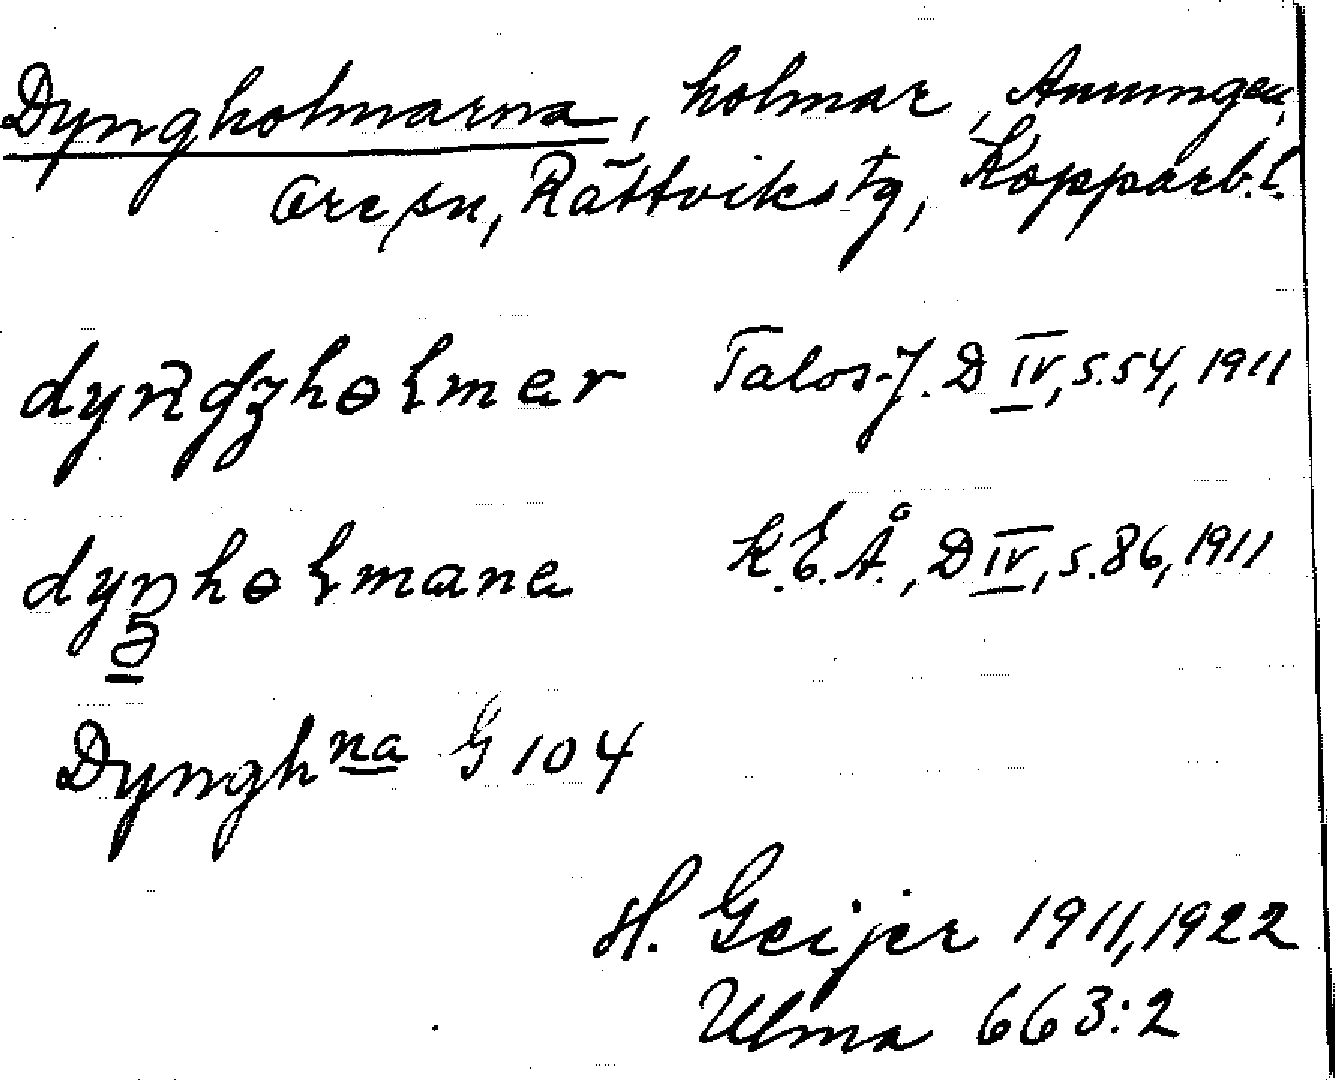 Dyngholmarna, holmar, Amungen,
Ore sn, Rättviks tg, Kopparb. l.
Talos-J. D IV, s. 54, 1911
K.E.Å., D IV, s. 86, 1911
Dyngh na G 104
H. Geijer 1911, 1922
Ulma 663:2